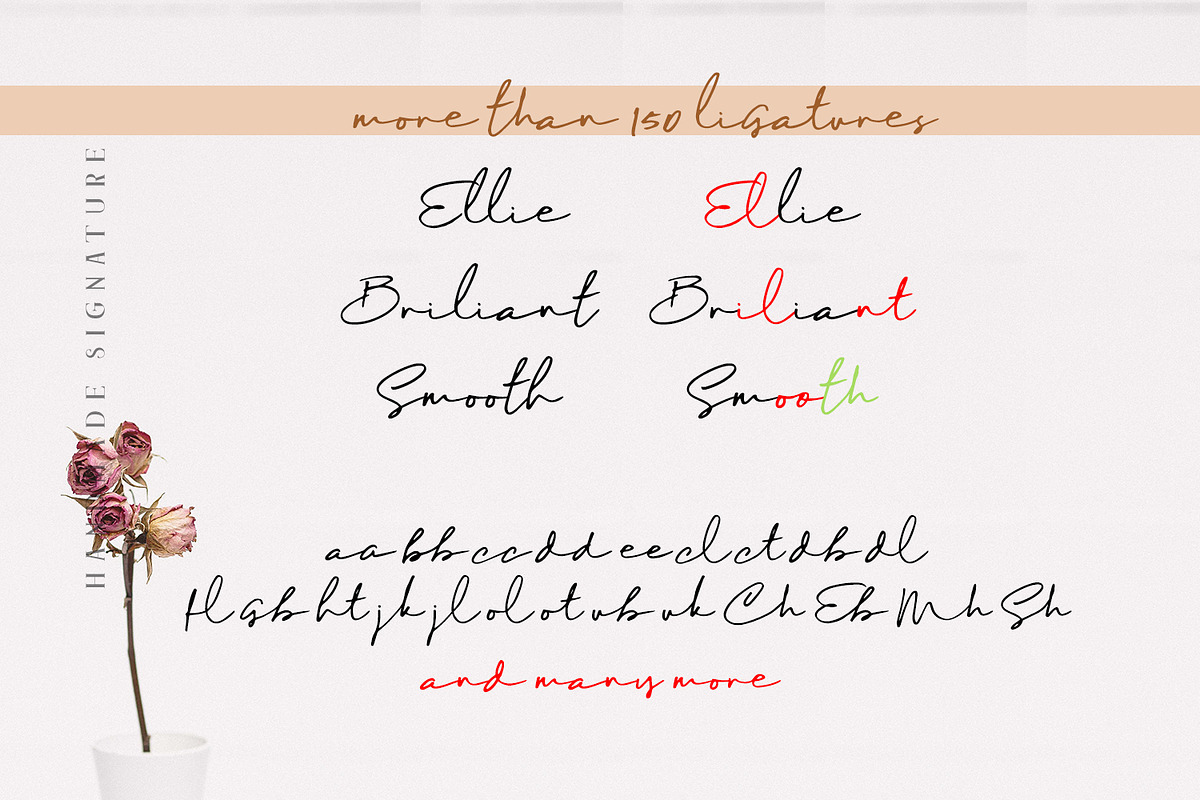 more than 150 ligatures
Ellie Ellie
Briliant Briliant
Smooth Smooth
aa bb cc dd ee cl ct db dl
fl gb ht jk jl ol ot vb vk Ch Eb Mh Sh
and many more
DE SIGNATURE